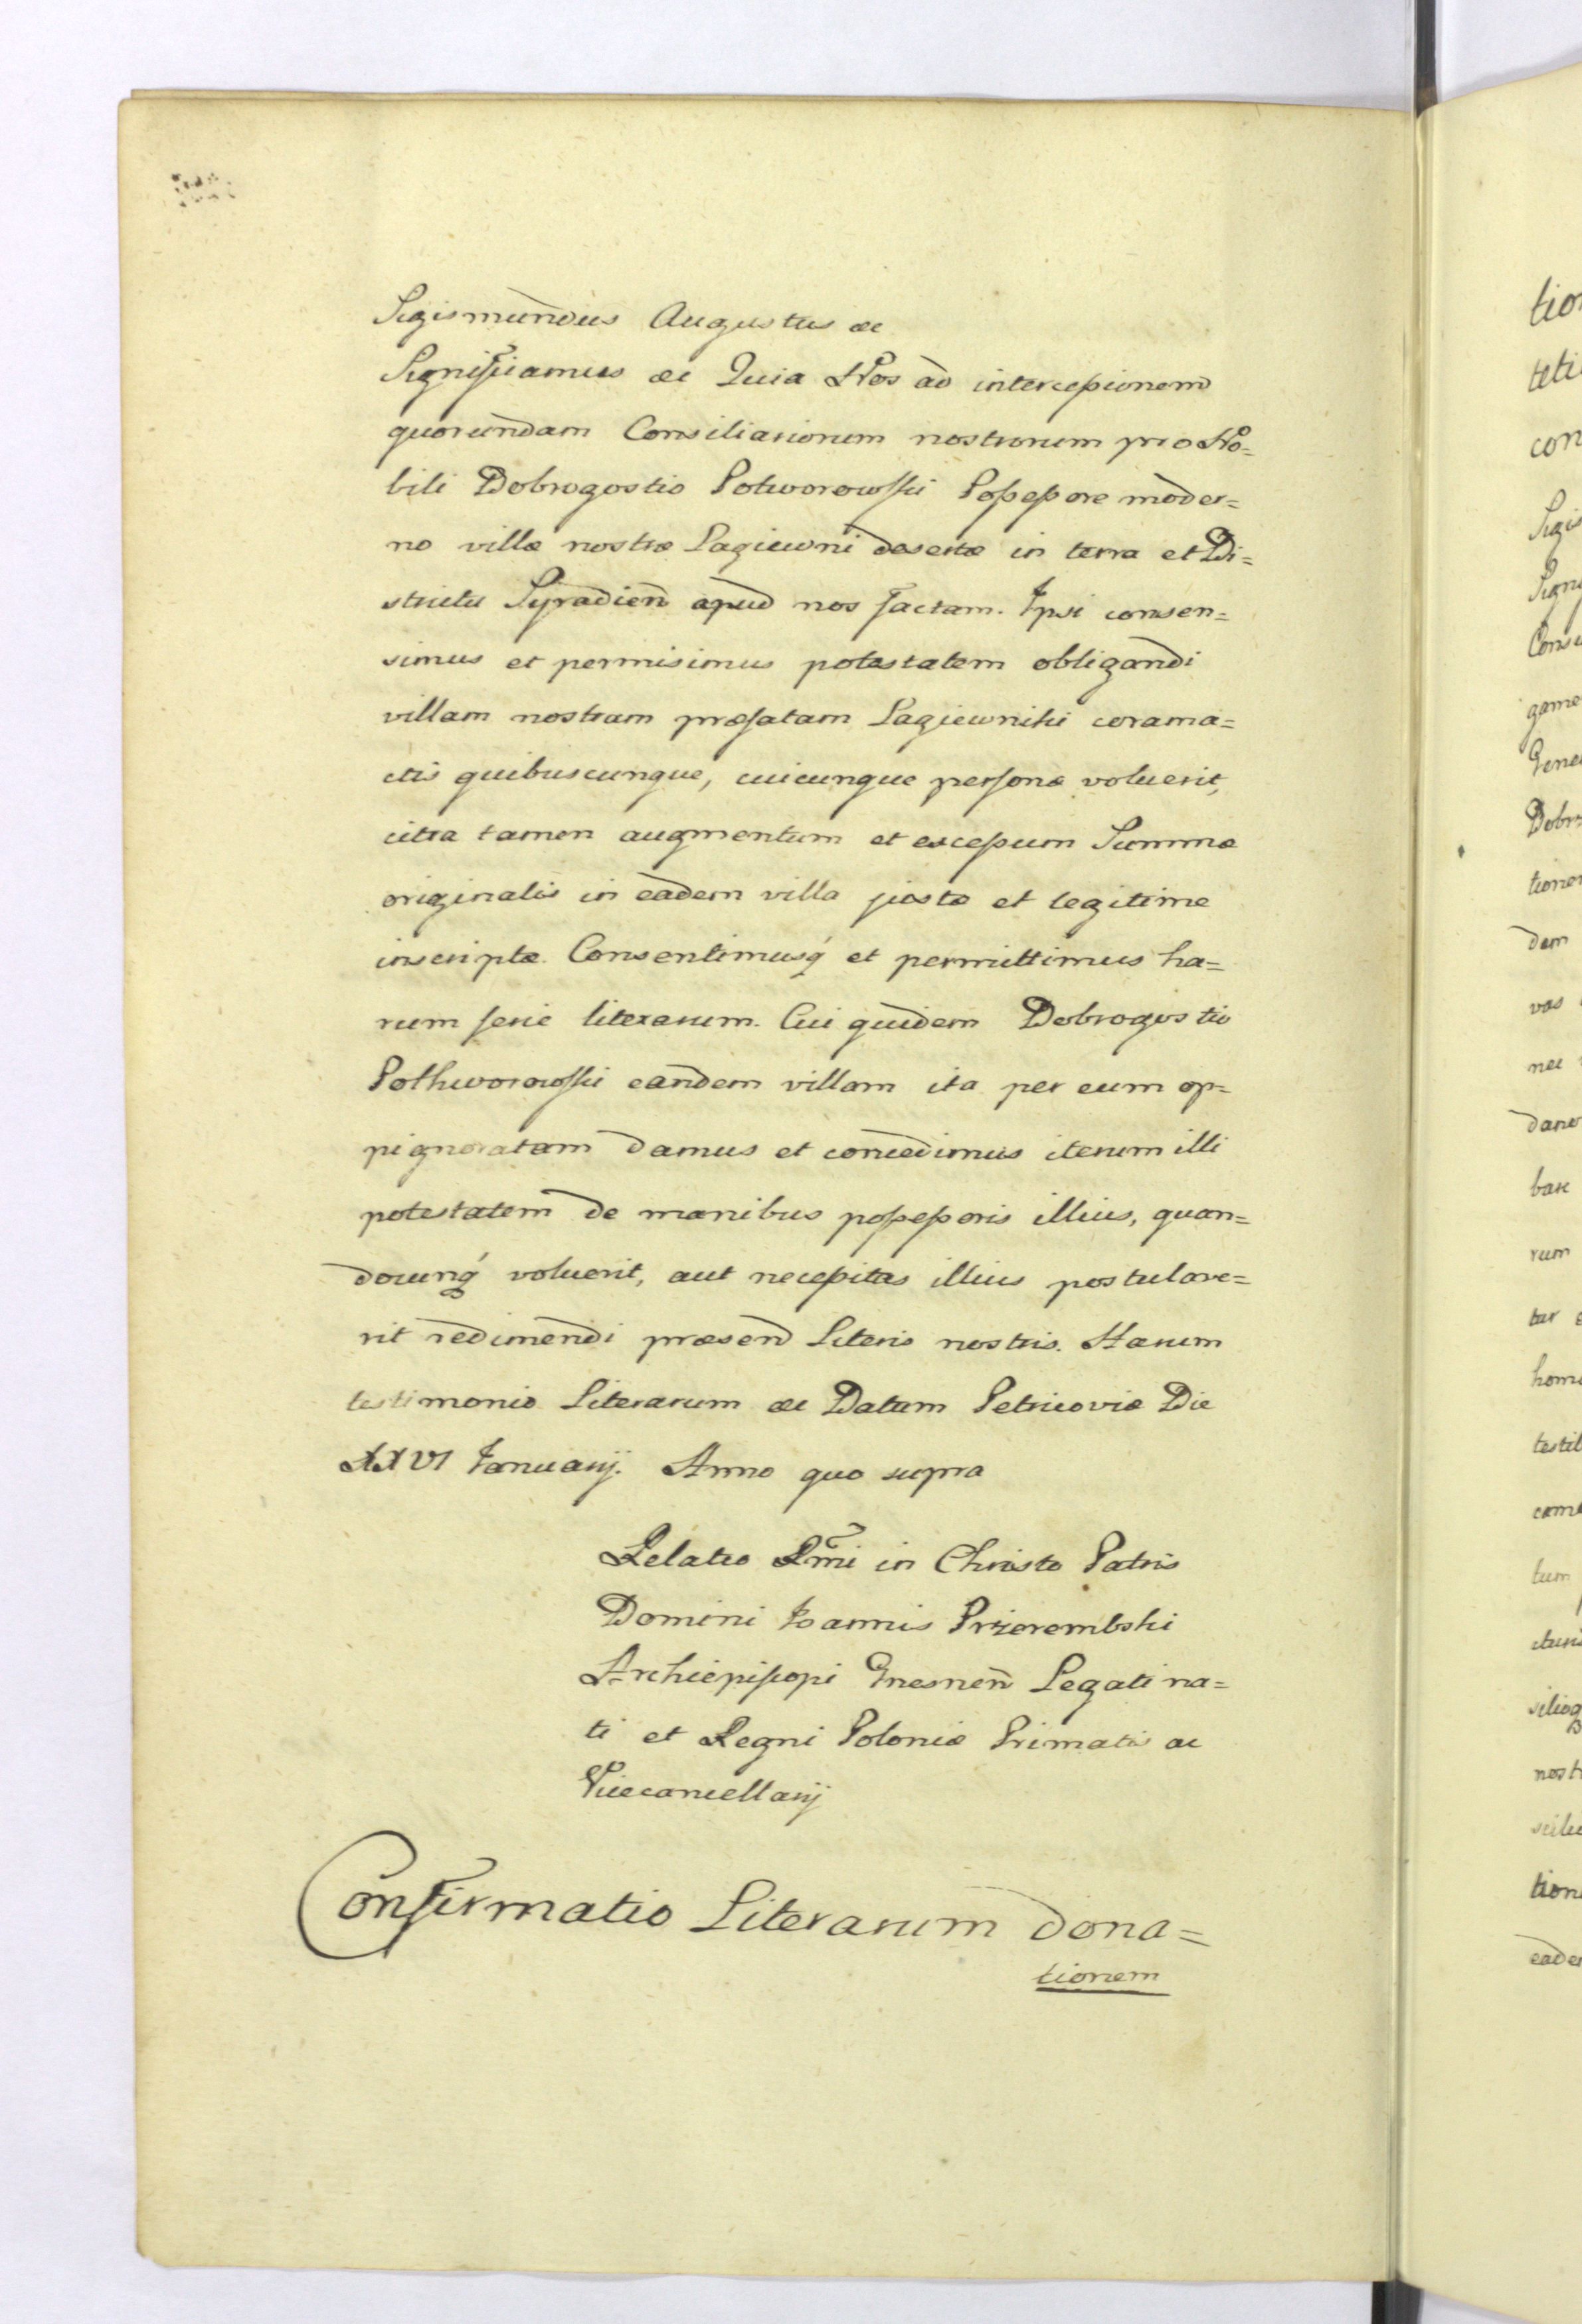 Sigismundus Augustus &c
Significamus &c Quia Nos ad intercessionem
quorundam Consiliariorum nostrorum pro No=
bili Dobrogostio Potworowski Possessore moder=
no villæ nostræ Lagiewni desertæ in terra et Di=
strictu Syradień apud nos factam. Ipsi consen=
simus et permisimus potestatem obligandi
villam nostram præfatam Lagiewniki corama=
ctis quibuscunque, cuicunque personæ voluerit,
citra tamen augmentum et excessum Summæ
originalis in eadem villa juste et legitime
inscriptæ Consentimusq́ et permittimus ha=
rum serie literarum. Cui quidem Dobrogostio
Pothworowski eandem villam ita per eum op=
pignoratam damus et concedimus iterum illi
potestatem de manibus possessoris illius, quan=
docunq́ voluerit, aut necessitas illius postulave=
rit redimendi præsen̄ Literis nostris. Harum
testimonio Literarum &c Datum Petricoviæ Die
XXVI Januarij. Anno quo supra
Relatio Rm̄i in Christo Patris
Domini Joannis Przerembski
Archiepiscopi Gnesnen̄ Legati na=
ti et Regni Poloniæ Primatis ac
Vicecancellarij
Confirmatio Literarum dona=
tionem
tio
teti
con
Sigis
Signi
Consi
game
Gene
Dobr
tionem
dam
vas
nec
dano
bare
rum
tur
hom
testib
came
tum
nost
tion
eader